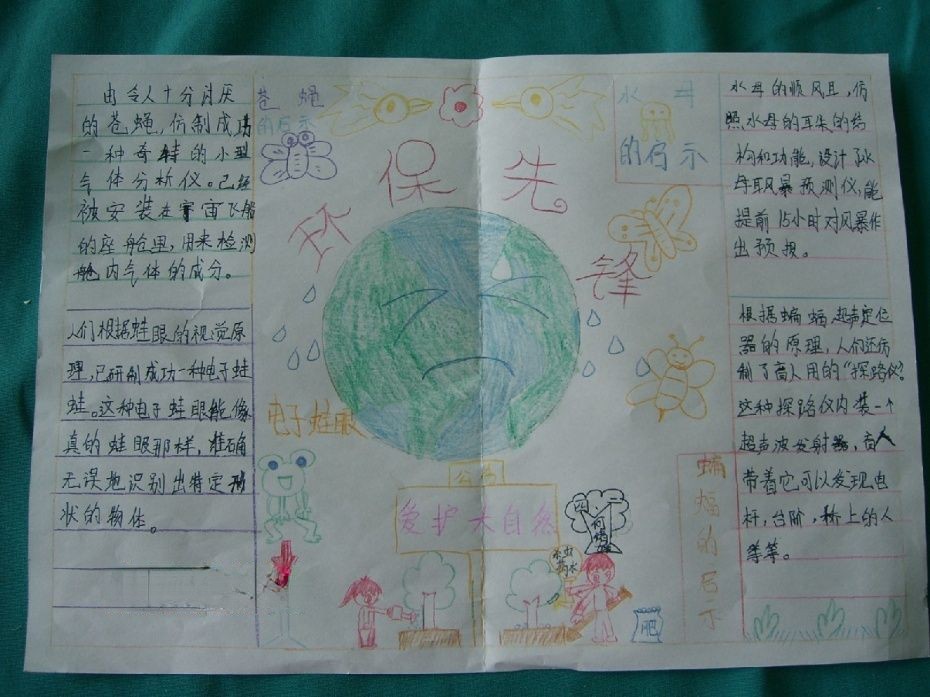 由令人十分讨厌
的苍蝇,仿制成功
一种奇特的小型
气体分析仪。已经
被安装在宇宙飞船
的座舱里,用来检测
舱内气体的成分。
人们根据蛙眼的视觉原
理,已研制成功一种电子蛙
蛙。这种电子蛙眼能像
真的蛙眼那样,准确
无误地识别出特定形
状的物体。
苍蝇
的启示
环保先锋
电子蛙眼
公告
爱护大自然
肥
水母
的启示
水母的顺风耳,仿
照水母的耳朵的结
构和功能,设计了水
母耳风暴预测仪,能
提前15小时对风暴作
出预报。
根据蝙蝠超声定位
器的原理,人们还仿
制了盲人用的“探路仪”。
这种探路仪内装一个
超声波发射器,盲人
带着它可以发现电
杆,台阶,桥上的人
等等。
蝙蝠的启示